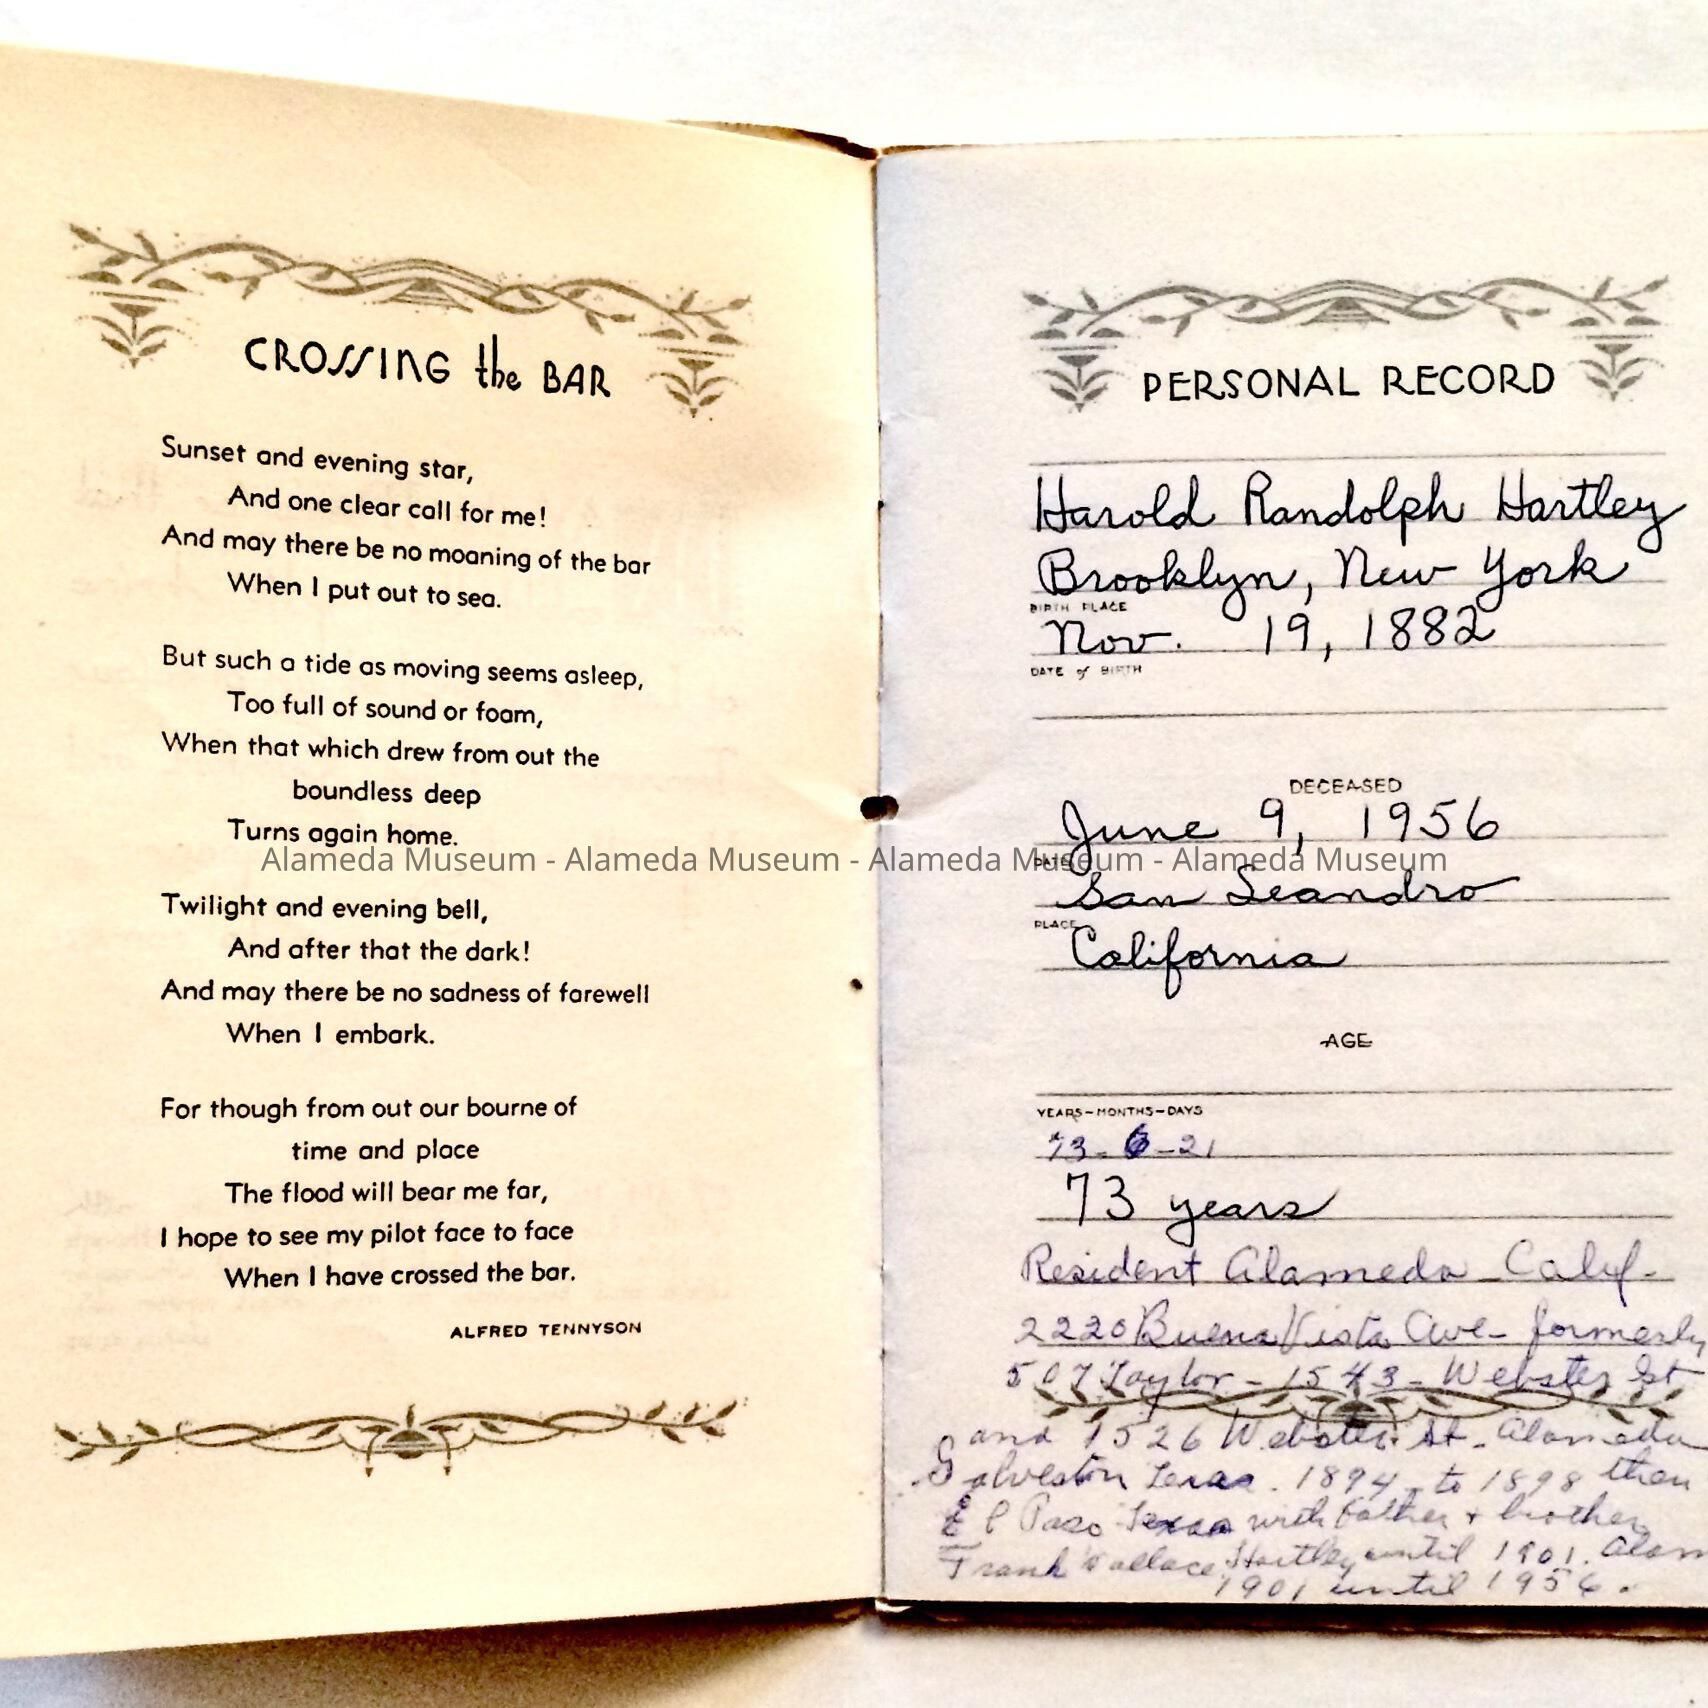 CROSSING the BAR
Sunset and evening star,
And one clear call for me!
And may there be no moaning of the bar
When I put out to sea.
But such a tide as moving seems asleep,
Too full of sound or foam,
When that which drew from out the
boundless deep
Turns again home.
Twilight and evening bell,
And after that the dark!
And may there be no sadness of farewell
When I embark.
For though from out our bourne of
time and place
The flood will bear me far,
I hope to see my pilot face to face
When I have crossed the bar.
ALFRED TENNYSON
PERSONAL RECORD
Harold Randolph Hartley
Brooklyn, New York
BIRTH PLACE
Nov. 19, 1882
DATE of BIRTH
DECEASED
June 9, 1956
DATE
San Leandro
PLACE
California
AGE
YEARS-MONTHS-DAYS
73-6-21
73 years
Resident Alameda - Calif-
2220 Buena Vista Ave- formerly
507 Taylor - 1543 - Webster St
and 1526 Webster St - Alameda
Galveston Texas. 1894 - to 1898 then
El Paso Texas with Father + brother
Frank Wallace Hartley until 1901. Alam
1901 until 1956.
Alameda Museum - Alameda Museum - Alameda Museum - Alameda Museum